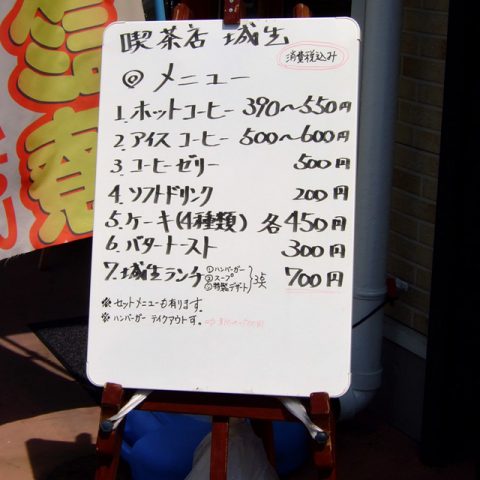 喫茶店 城生
消費税込み
◎メニュー
1.ホットコーヒー 390〜550円
2.アイスコーヒー 500〜600円
3.コーヒーゼリー 500円
4.ソフトドリンク 200円
5.ケーキ(4種類) 各450円
6.バタートースト 300円
7.城生ランチ ①ハンバーガー ②スープ ③特製デザート 3点 700円
※セットメニューも有ります。
※ハンバーガー テイクアウト可。